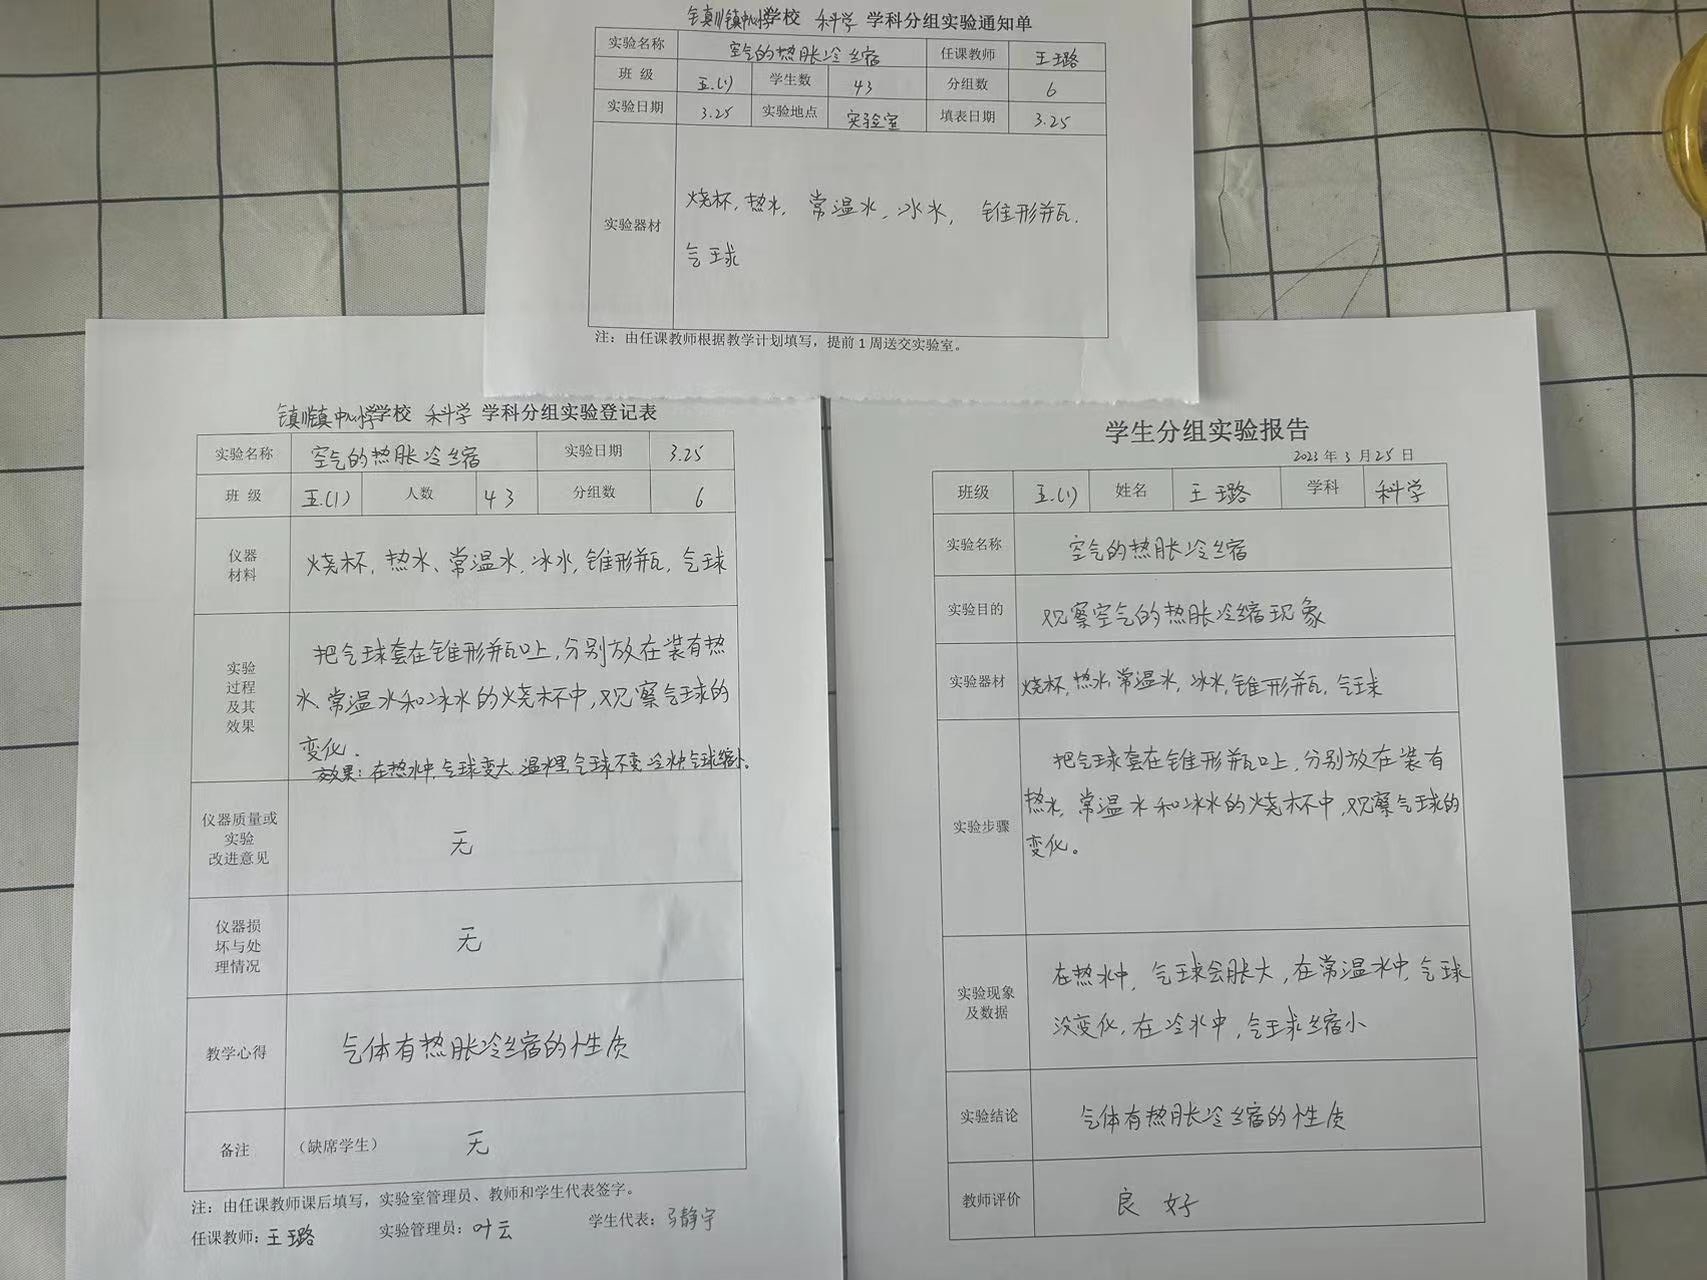 镇川镇中心小学学校 科学 学科分组实验通知单
实验名称 空气的热胀冷缩 任课教师 王璐
班 级 五.(1) 学生数 43 分组数 6
实验日期 3.25 实验地点 实验室 填表日期 3.25
实验器材
烧杯, 热水, 常温水, 冰水, 锥形瓶,
气球
注：由任课教师根据教学计划填写，提前 1 周送交实验室。
镇川镇中心小学学校 科学 学科分组实验登记表
实验名称 空气的热胀冷缩 实验日期 3.25
班 级 五.(1) 人数 43 分组数 6
仪器
材料
烧杯, 热水、常温水, 冰水, 锥形瓶, 气球
实验
过程
及其
效果
把气球套在锥形瓶口上, 分别放在装有热
水、常温水和冰水的烧杯中, 观察气球的
变化.
效果: 在热水中, 气球变大, 温水里气球不变, 冷水中气球缩小.
仪器质量或
实验
改进意见
无
仪器损
坏与处
理情况
无
教学心得 气体有热胀冷缩的性质
备注 （缺席学生） 无
注：由任课教师课后填写，实验室管理员、教师和学生代表签字。
任课教师: 王璐 实验管理员: 叶云 学生代表: 马静宇
学生分组实验报告
2023 年 3 月 25 日
班级 五.(1) 姓名 王璐 学科 科学
实验名称 空气的热胀冷缩
实验目的 观察空气的热胀冷缩现象
实验器材 烧杯, 热水, 常温水, 冰水, 锥形瓶, 气球
实验步骤
把气球套在锥形瓶口上, 分别放在装有
热水, 常温水和冰水的烧杯中, 观察气球的
变化。
实验现象
及数据
在热水中, 气球会胀大, 在常温水中, 气球
没变化, 在冷水中, 气球缩小
实验结论 气体有热胀冷缩的性质
教师评价 良 好